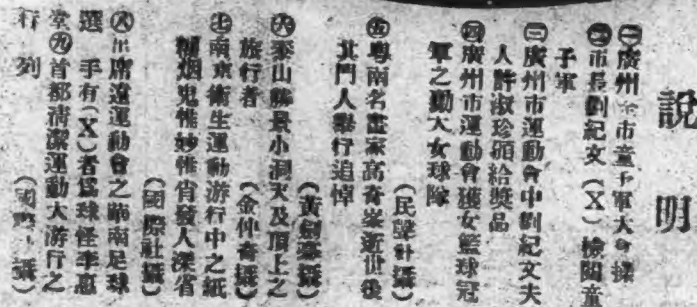 說明
㊀廣州全市童子軍大會操
㊁市長劉紀文（X）檢閱童
子軍
㊂廣州市運動會中劉紀文夫
人許淑珍頒給獎品
㊃廣州市運動會獲女籃球冠
軍之勷大女球隊
（民聲社攝）
㊄粵南名畫家高奇峯逝世後
其門人舉行追悼
（黃劍豪攝）
㊅泰山勝景小洞天及頂上之
旅行者
（金仲 攝）
㊆南京衛生運動游行中之紙
糊烟鬼惟妙惟肖發人深省
（國際社攝）
㊇出席遠運動會之 南足球
選手有（X）者爲球怪李惠
堂㊈首都清潔運動大游行之
行列
（國際 攝）